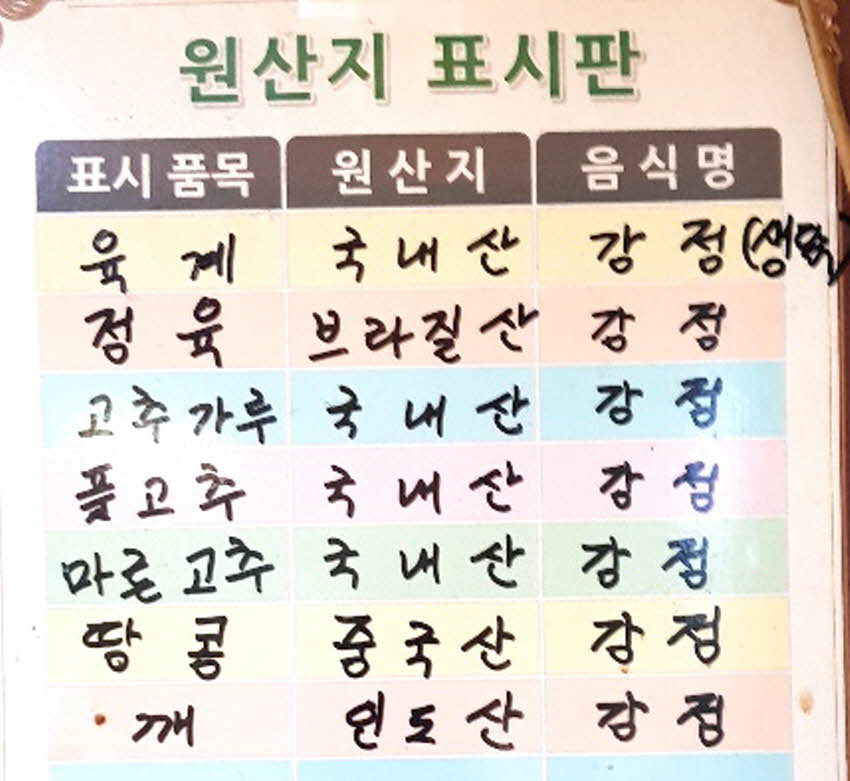 원산지 표시판
표시 품목 원산지 음식명
육계 국내산 강점(생닭)
점육 브라질산 강점
고추가루 국내산 강점
풋고추 국내산 강점
마른고추 국내산 강점
땅콩 중국산 강점
깨 인도산 강점